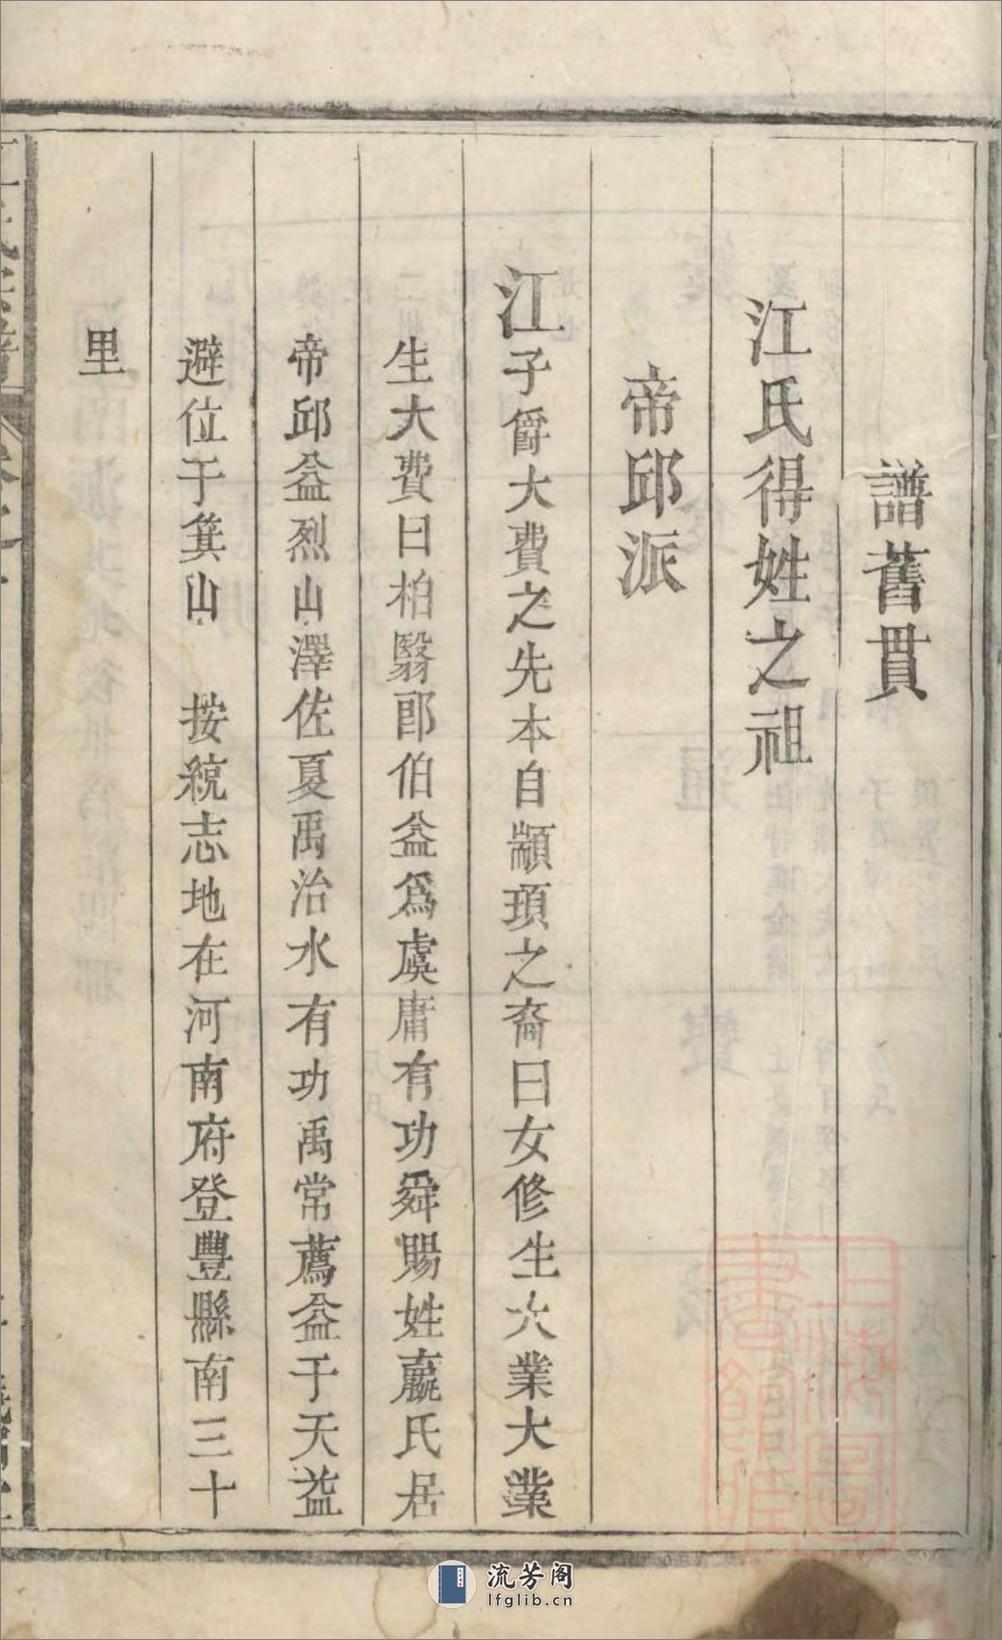 譜舊貫
江氏得姓之祖
帝邱派
江子爵大費之先本自顓頊之裔曰女修生大業大業
生大費曰柏翳郎伯益爲虞庸有功舜賜姓嬴氏居
帝邱益烈山澤佐夏禹治水有功禹常薦益于天益
避位于箕山 按統志地在河南府登豐縣南三十
里
上海圖書館藏
流芳阁
lfglib.cn